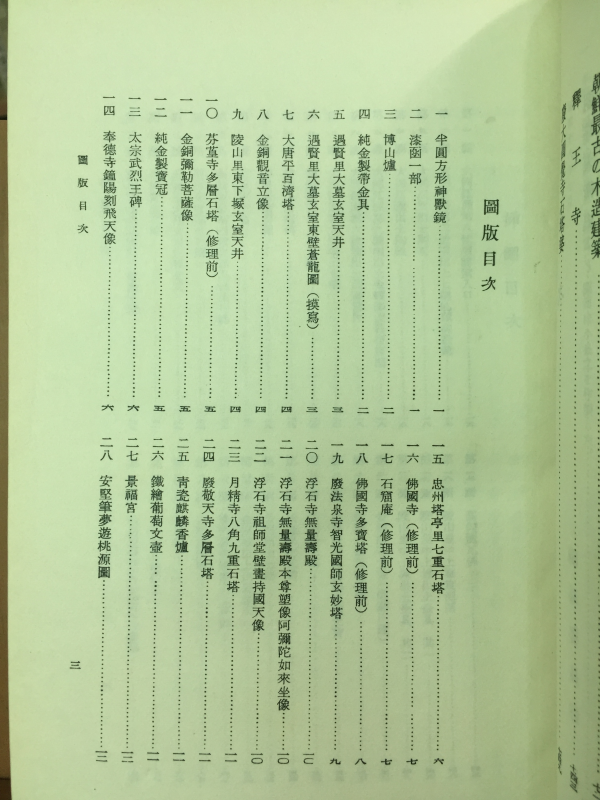 朝鮮最古の木造建築
釋王寺
圖版目次
一 半圓方形神獸鏡 一
二 漆函一部 一
三 博山爐 二
四 純金製帶金具 二
五 遇賢里大墓玄室天井 三
六 遇賢里大墓玄室東壁蒼龍圖（摸寫） 三
七 大唐平百濟塔 四
八 金銅觀音立像 四
九 陵山里東下塚玄室天井 四
一〇 芬篁寺多層石塔（修理前） 五
一一 金銅彌勒菩薩像 五
一二 純金製寶冠 五
一三 太宗武烈王碑 六
一四 奉德寺鐘陽刻飛天像 六
一五 忠州塔亭里七重石塔 六
一六 佛國寺（修理前） 七
一七 石窟庵（修理前） 七
一八 佛國寺多寶塔（修理前） 八
一九 廢法泉寺智光國師玄妙塔 九
二〇 浮石寺無量壽殿 一〇
二一 浮石寺無量壽殿本尊塑像阿彌陀如來坐像 一〇
二二 浮石寺祖師堂壁畫持國天像 一〇
二三 月精寺八角九重石塔 一一
二四 廢敬天寺多層石塔 一一
二五 靑瓷麒麟香爐 一一
二六 鐵繪葡萄文壺 一一
二七 景福宮 一三
二八 安堅筆夢遊桃源圖 一三
圖版目次
三